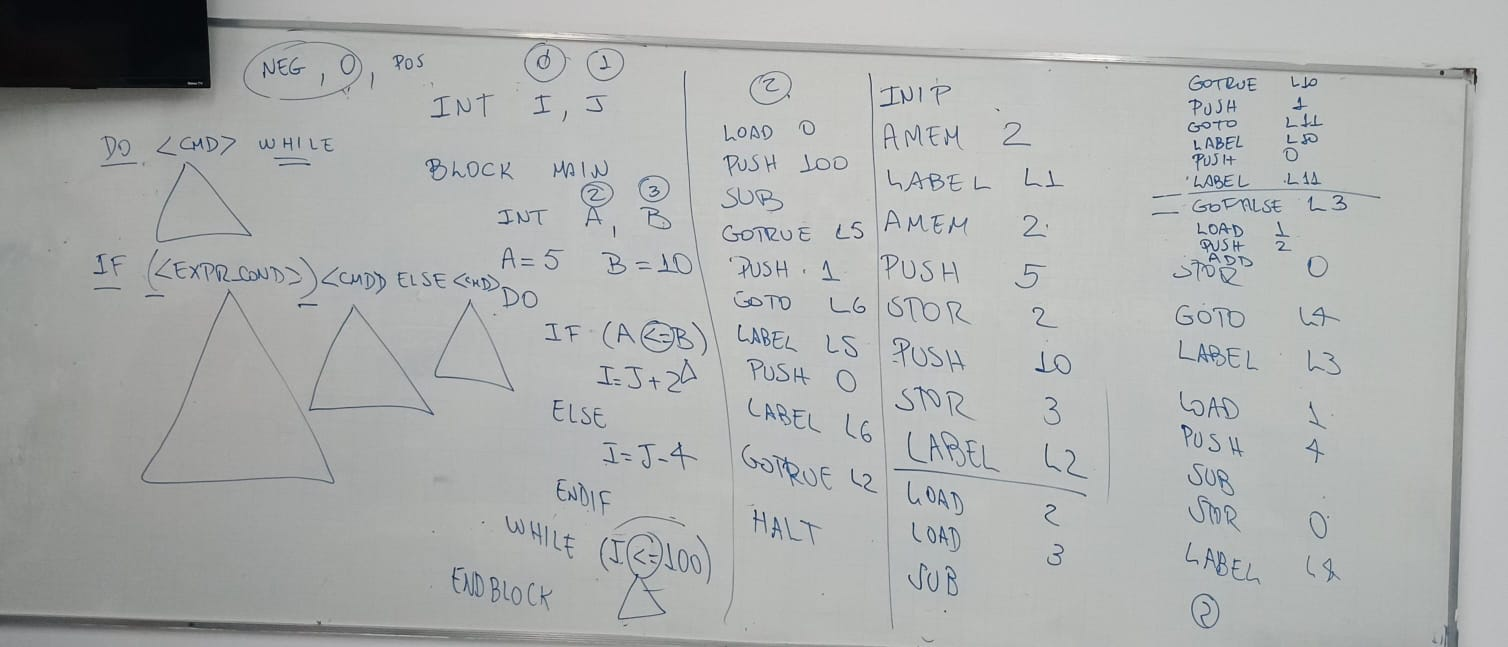 NEG, 0, POS
DO <CMD> WHILE
IF (<EXPR_COND>) <CMD> ELSE <CMD>
0 1
INT I, J
BLOCK MAIN
2 3
INT A, B
A=5 B=10
DO
IF (A<=B)
I=J+2
ELSE
I=J-4
ENDIF
WHILE (I<=100)
ENDBLOCK
2
LOAD 0
PUSH 100
SUB
GOTRUE L5
PUSH 1
GOTO L6
LABEL L5
PUSH 0
LABEL L6
GOTRUE L2
HALT
INIP
AMEM 2
LABEL L1
AMEM 2
PUSH 5
STOR 2
PUSH 10
STOR 3
LABEL L2
LOAD 2
LOAD 3
SUB
GOTRUE L10
PUSH 1
GOTO L11
LABEL L10
PUSH 0
LABEL L11
GOFALSE L3
LOAD 1
PUSH 2
ADD
STOR 0
GOTO L4
LABEL L3
LOAD 1
PUSH 4
SUB
STOR 0
LABEL L4
2